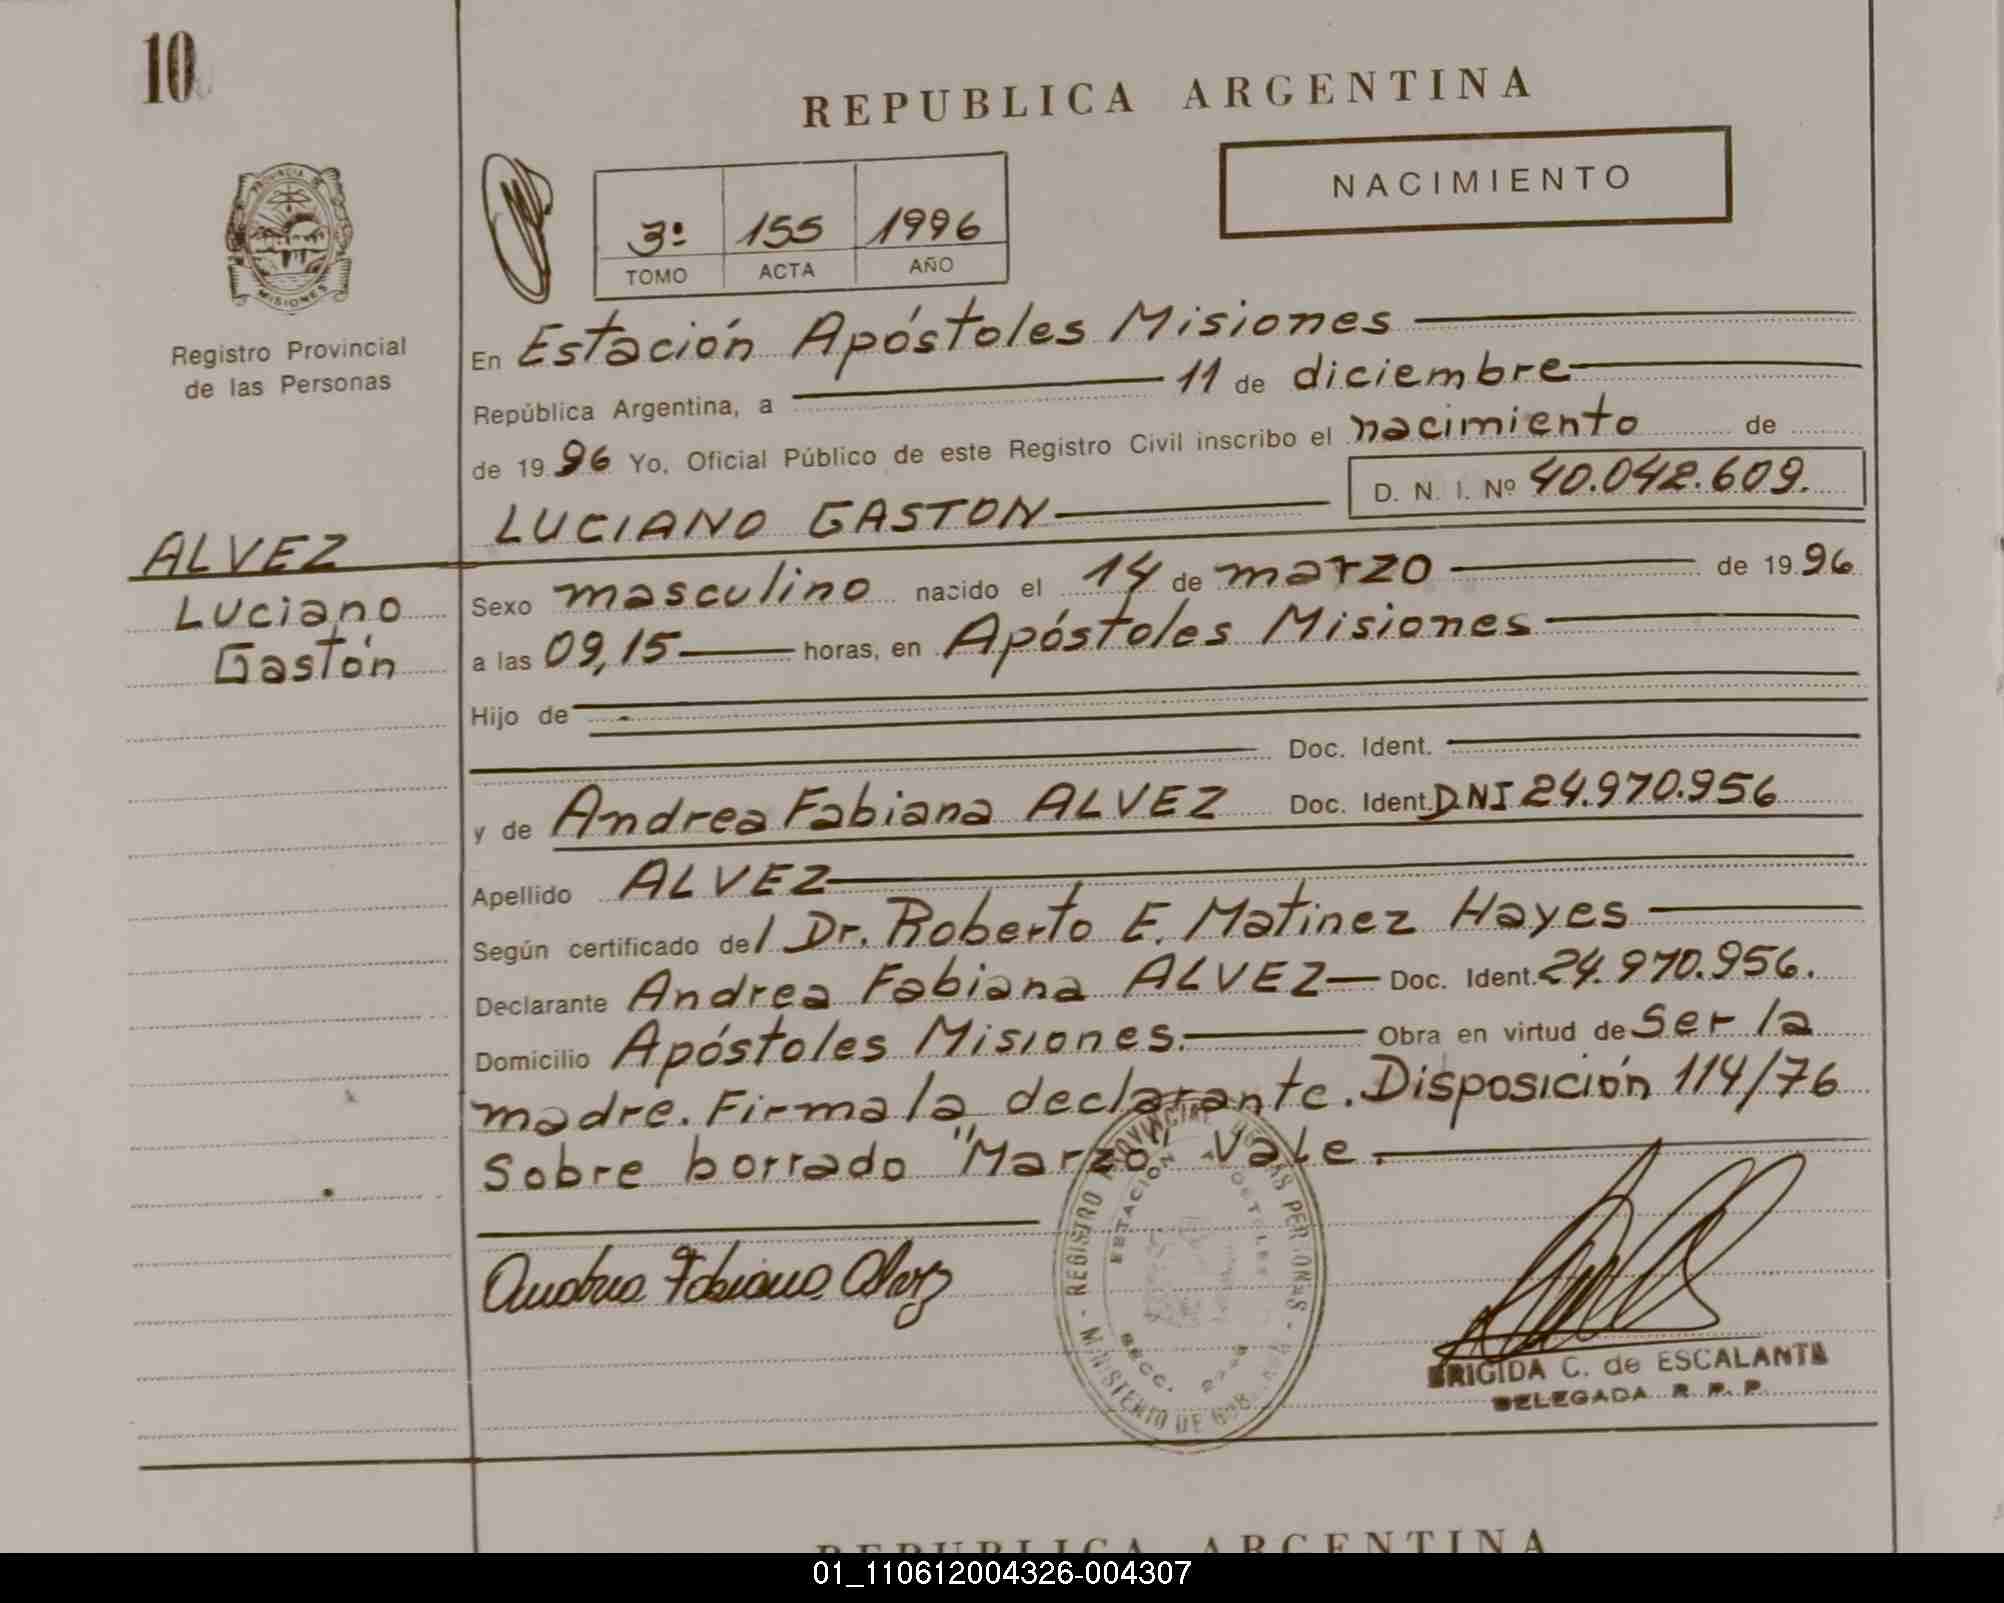 10
REPUBLICA ARGENTINA
NACIMIENTO
3º 155 1996
TOMO ACTA AÑO
PROVINCIA DE
MISIONES
Registro Provincial
de las Personas
En Estación Apóstoles Misiones
República Argentina, a 11 de diciembre
de 1996 Yo, Oficial Público de este Registro Civil inscribo el nacimiento de
D. N. I. Nº 40.042.609.
LUCIANO GASTON
ALVEZ
Luciano
Gastón
Sexo masculino nacido el 14 de marzo de 1996
a las 09,15 horas, en Apóstoles Misiones
Hijo de
Doc. Ident.
y de Andrea Fabiana ALVEZ Doc. Ident. DNI 24.970.956
Apellido ALVEZ
Según certificado del Dr. Roberto E. Matinez Hayes
Declarante Andrea Fabiana ALVEZ Doc. Ident. 24.970.956.
Domicilio Apóstoles Misiones. Obra en virtud de Ser la
madre. Firma la declarante. Disposición 114/76
Sobre borrado "Marzo" Vale.
Andrea Fabiana Alvez
REGISTRO PROVINCIAL DE LAS PERSONAS
ESTACION APOSTOLES
SECC.
MINISTERIO DE GOB.
BRIGIDA C. de ESCALANTE
DELEGADA R. P. P.
REPUBLICA ARGENTINA
01_110612004326-004307